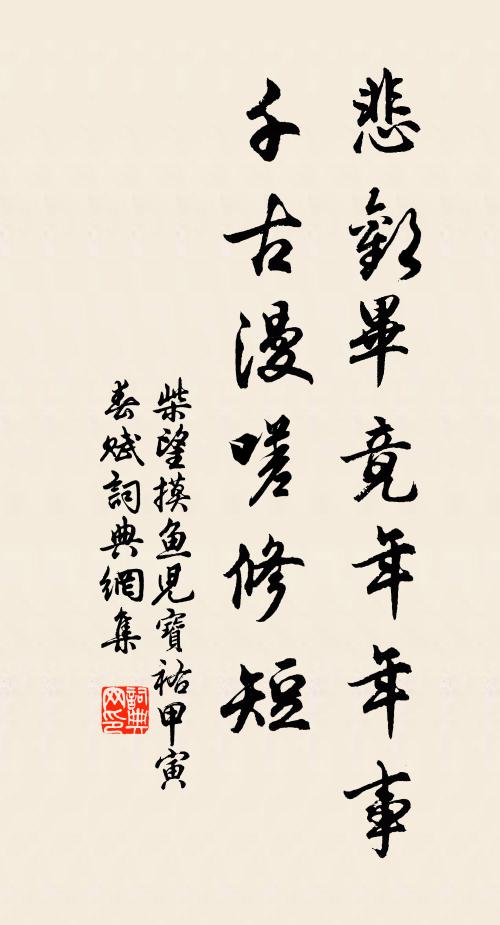 悲歡畢竟年年事
千古漫嗟修短
柴望摸魚兒寶祐甲寅
春賦詞典網集
詞典
网印